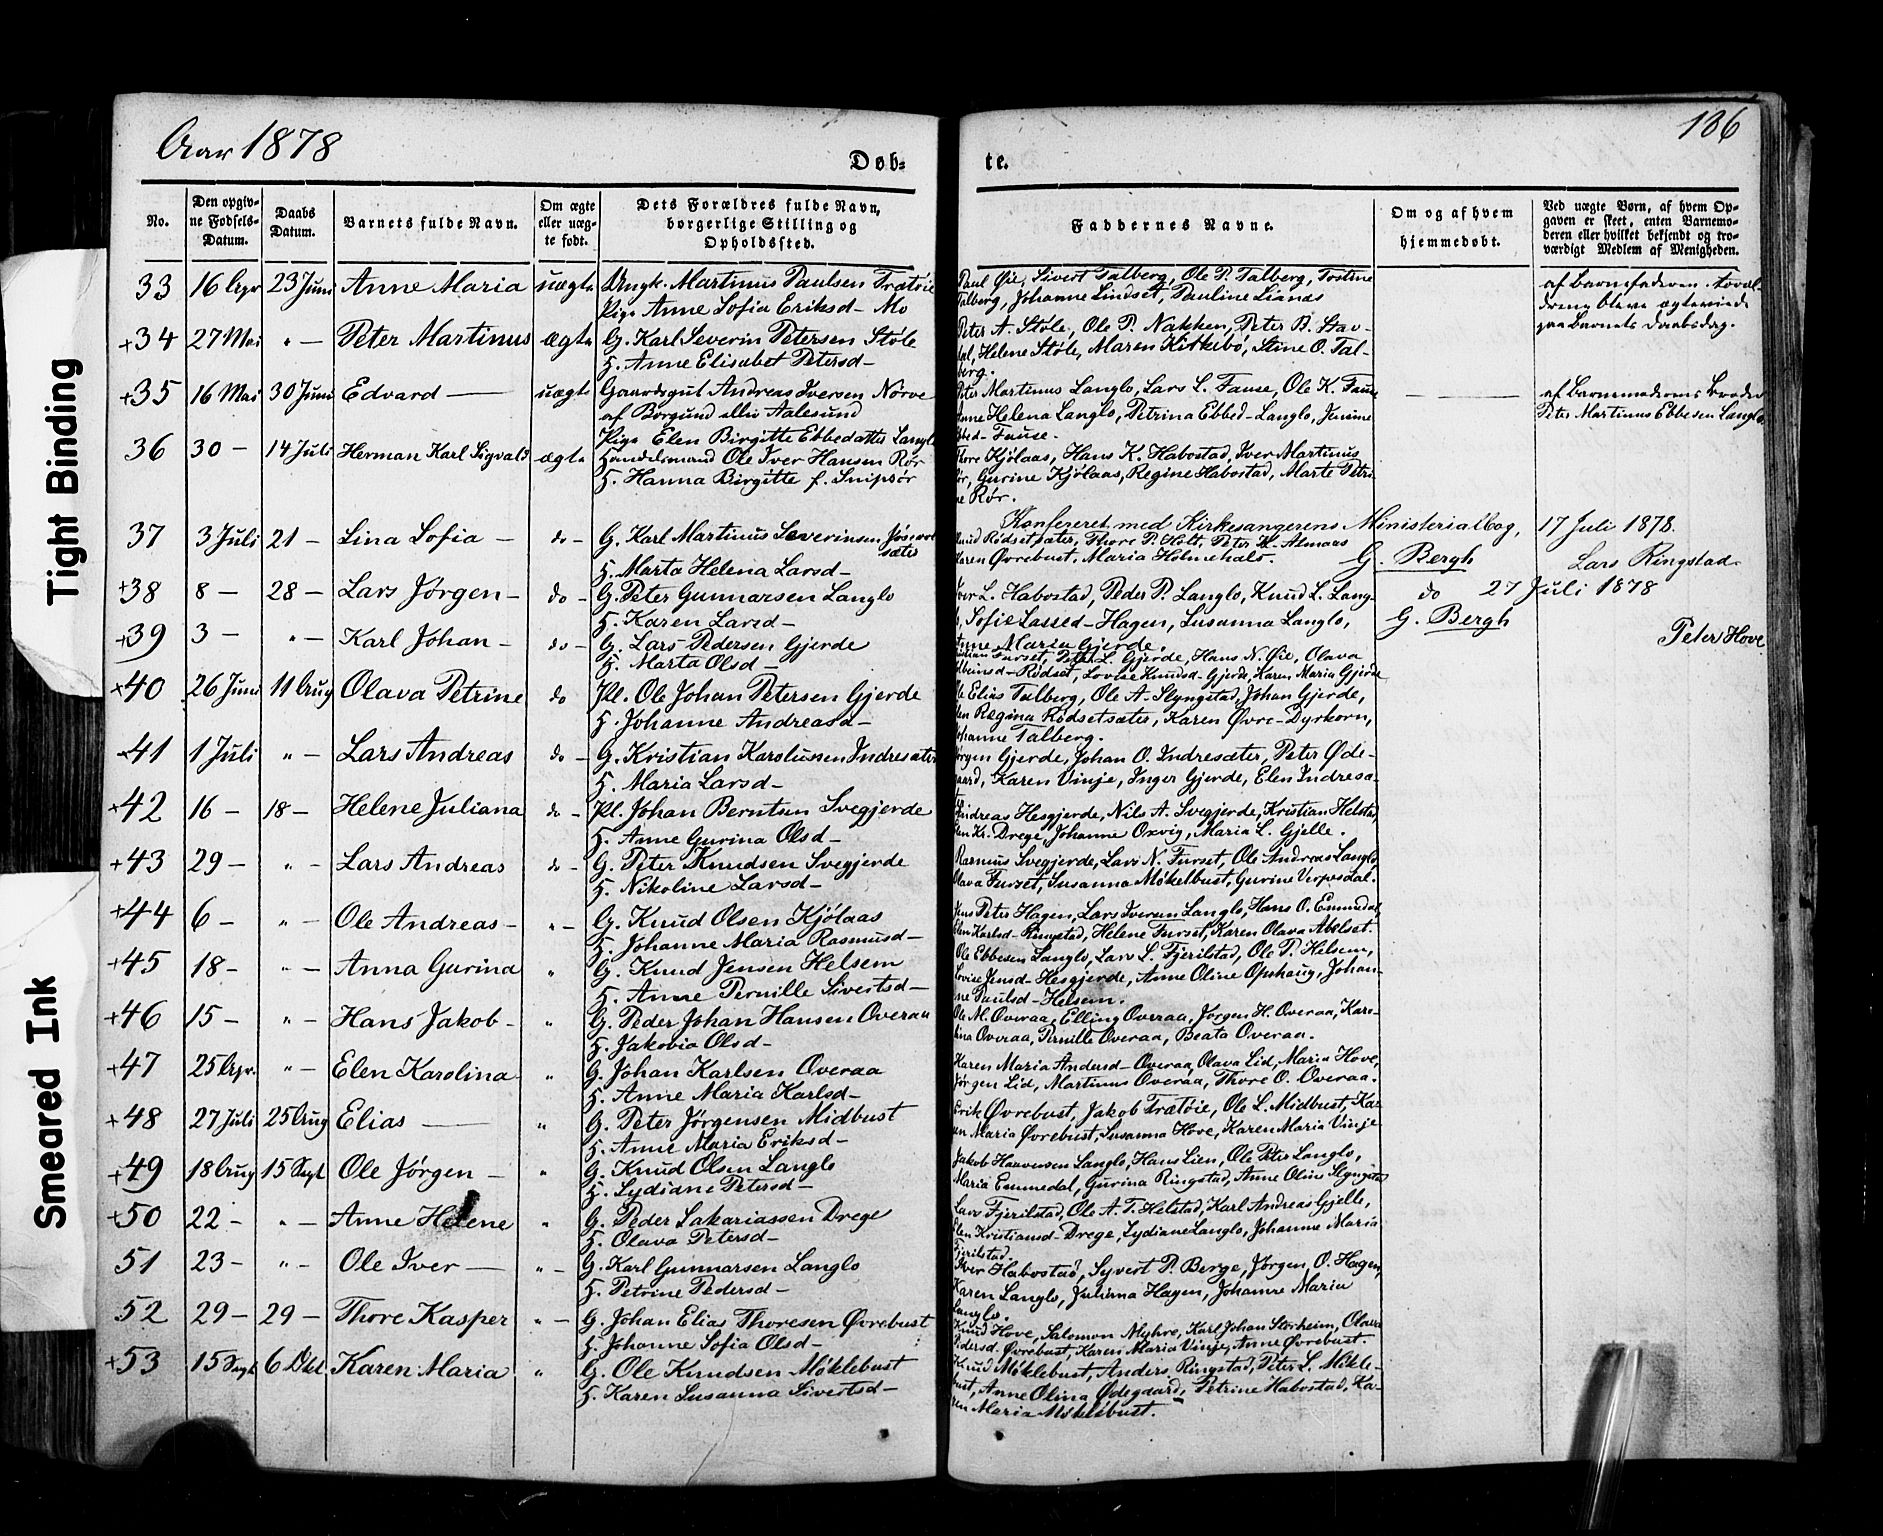 Aar 1878
Døb-
te.
186
No.
Den opgiv-
ne Fødsels-
Datum.
Daabs
Datum.
Barnets fulde Navn.
Om ægte
eller uæg-
te født.
Dets Forældres fulde Navn,
borgerlige Stilling og
Opholdssted.
Faddernes Navne.
Om og af hvem
hjemmedøbt.
Ved uægte Børn, af hvem Op-
gaven er skeet, enten Barnemo-
deren eller hvilket bekjendt og tro-
værdigt Medlem af Menigheden.
33 16 Apr 23 Juni Anne Maria uægte Ungk. Martinus Paulsen Trætøie
Pige Anne Sofia Eriksd- Mo
Paul Øie, Sivert Talberg, Ole P. Talberg, Tostine
Talberg, Johanne Lindset, Pauline Lianæs
af barnefaderen. Foræl-
drene bleve ægteviede
paa barnets daabsdag.
+34 27 Mai " — Peter Martinus ægte G. Karl Severin Petersen Støle
H. Anne Elisabet Petersd-
Peter A. Støle, Ole P. Nakken, Peter B. Stav-
dal, Helene Støle, Maren Kirkebø, Stine O. Tal-
berg.
+35 16 Mai 30 Juni Edvard — uægte Gaardsgut Andreas Iversen Nørve
af Borgund elliv Aalesund
Pige Elen Birgitte Ebbedatter Langlo
Peter Martinus Langlo, Lars L. Fause, Ole K. Fause
Anne Helena Langlo, Petrina Ebbed-Langlo, Jenine
Ebbed-Fause.
af barnemoderens broder
Peter Martinus Ebbesen Langlo
36 30 — 14 Juli Herman Karl Sigvald ægte Handelsmand Ole Iver Hansen Rør
H. Hanna Birgitte f. Snipsør
Thore Kjølaas, Hans K. Habostad, Iver Martinus
Rør, Gurine Kjölaas, Regine Habostad, Marte Petri-
ne Rør.
Konfereret med Kirkesangerens Ministerialbog, 17 Juli 1878.
G. Bergh Lars Ringstad
37 3 Juli 21 — Lina Sofia — do - G. Karl Martinus Severinsen
sæter
H. Marta Helena Larsd-
Knud Rødsetsæter, Thore P. Holt, Peter K. Almaas
Karen Øvrebust, Maria Holmehals.
+38 8 — 28 — Lars Jørgen — do - G. Peter Gunnarsen Langlo
H. Karen Larsd-
Iver L. Habostad, Peder P. Langlo, Knud L. Lang-
lo, Sofie Lassed-Hagen, Susanna Langlo,
Anne Maria Gjerde.
do 27 Juli 1878
G. Bergh Peter Hove
+39 3 — " — Karl Johan — do - G. Lars Pedersen Gjerde
H. Marta Olsd-
Furset, Peter L. Gjerde, Hans N. Øie, Olava
Rødset, Lovise Knudsd-Gjerde, Karen Maria Gjerde
+40 26 Juni 11 Aug Olava Petrine do Pl. Ole Johan Petersen Gjerde
H. Johanne Andreasd-
Ole Elias Talberg, Ole A. Slyngstad, Johan Gjerde,
Elen Regina Rødsetsæter, Karen Øvre-Dyrkorn,
Johanne Talberg.
+41 1 Juli " — Lars Andreas do - G. Kristian Karolussen Indresæter
H. Maria Larsd-
Jørgen Gjerde, Johan O. Indresæter, Peter Øde-
gaard, Karen Vinje, Inger Gjerde, Elen Indresæ-
+42 16 — 18 — Helene Juliana do - Pl. Johan Berntsen Svegjerde
H. Anne Gurina Olsd-
Andreas Hesgjerde, Nils A. Svegjerde, Kristian Helstad
Elen Kr. Drege, Johanne Oxvig, Maria L. Gjelle.
+43 29 — " — Lars Andreas do - G. Peter Knudsen Svegjerde
H. Nikoline Larsd-
Rasmus Svegjerde, Lars N. Furset, Ole Andreas Langlo,
Olava Furset, Susanna Møkelbust, Gurine Verpesdal.
+44 6 — " — Ole Andreas - " - G. Knud Olsen Kjölaas
H. Johanne Maria Rasmusd-
Jens Peter Hagen, Lars Iversen Langlo, Hans O. Emmedal,
Elen Karlsd-Ringstad, Helene Furset, Karen Olava Abelset.
+45 18 - " — Anna Gurina " G. Knud Jensen Helsem
H. Anne Pernille Sivertsd-
Ole Ebbesen Langlo, Lars L. Fjerilstad, Ole P. Helsem,
Lovise Jensd-Hesgjerde, Anne Oline Opshaug, Johan-
ne Paulsd-Helsem.
+46 15 — " — Hans Jakob - " G. Peder Johan Hansen Overaa
H. Jakobia Olsd-
Ole M. Overaa, Elling Overaa, Jørgen H. Overaa, Karo-
lina Overaa, Pernille Overaa, Beata Overaa.
+47 25 Apr. " — Elen Karolina " G. Johan Karlsen Overaa
H. Anne Maria Karlsd-
Karen Maria Andersd-Overaa, Olava Lid, Maria Hove,
Jørgen Lid, Martinus Overaa, Thore O. Overaa.
+48 27 Juli 25 Aug Elias — " G. Peter Jørgensen Midbust
H. Anne Maria Eriksd-
Erik Øvrebust, Jakob Trætøie, Ole L. Midbust, Ka-
ren Maria Øvrebust, Susanna Hove, Karen Maria Vinje
+49 18 Aug 15 Sept Ole Jørgen — " G. Knud Olsen Langlo
H. Lydiane Petersd-
Jakob Haavensen Langlo, Hans Lien, Ole Peter Langlo,
Maria Emmedal, Gurina Ringstad, Anne Oline Slyngstad
+50 22 - " — Anne Helene " G. Peder Sakariassen Drege
H. Olava Petersd-
Lars Fjerilstad, Ole A. T. Helstad, Karl Andreas Gjelle,
Elen Kristiansd-Drege, Lydiane Langlo, Johanne Maria
Fjerilstad.
51 23 - " — Ole Iver — " - G. Karl Gunnarsen Langlo
H. Petrine Pedersd-
Iver Habostad, Syvert P. Berge, Jørgen O. Hagen,
Karen Langlo, Juliana Hagen, Johanne Maria
Langlo.
52 29 — 29 — Thore Kasper " - G. Johan Elias Thoresen Øvrebust
H. Johanne Sofia Olsd-
Knud Hove, Salomon Myhre, Karl Johan Storheim, Olava
Pedersd. Øvrebust, Karen Maria Vinje, Anne Øvrebust.
+53 15 Sept 6 Okt. Karen Maria " G. Ole Knudsen Møklebust
H. Karen Susanna Sivertsd-
Knud Møklebust, Anders Ringstad, Peter L. Møkle-
bust, Anne Olina Ødegaard, Petrine Habostad, Ka-
ren Maria Møklebust.
Tight Binding
Smeared Ink